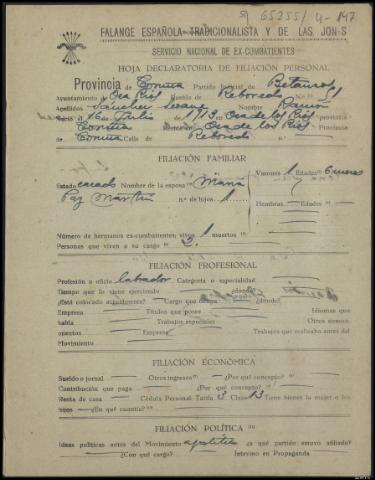 65255/4-147
FALANGE ESPAÑOLA TRADICIONALISTA Y DE LAS JON-S
SERVICIO NACIONAL DE EX-COMBATIENTES
HOJA DECLARATORIA DE FILIACIÓN PERSONAL
Provincia de Coruña Partido Judicial de Betanzos
Ayuntamiento de Oza Rios Pueblo de Reboredo N.º 51
Apellidos Sanchez Seoane Nombre Ramón
16 de Julio de 1913 en Oza de los Rios provincia
Coruña Morada Oza de los Rios Provincia
Coruña Calle de Reboredo
FILIACIÓN FAMILIAR
Estado casado Nombre de la esposa Maria
Paz Martin n.º de hijos 1
Varones 1 Edades 6 meses
Hembras Edades
Número de hermanos ex-combatientes, vivos 1 muertos
Personas que viven a su cargo 2
FILIACIÓN PROFESIONAL
Profesión u oficio labrador Categoría o especialidad
Tiempo que lo viene ejerciendo
¿Está colocado actualmente? Cargo que ocupa
Empresa Títulos que posee Idiomas que
habla Trabajos especiales Otros conoci-
mientos Empresa Trabajos que realizaba antes del
Movimiento
FILIACIÓN ECONÓMICA
Sueldo o jornal Otros ingresos ¿Por qué concepto?
Contribución que paga ¿Por qué concepto?
Renta de casa Cédula Personal: Tarifa 3 Clase 13 Tiene bienes la mujer o los
hijos ¿En qué cuantía?
FILIACIÓN POLÍTICA
Ideas políticas antes del Movimiento apolitico ¿a qué partido estuvo afiliado?
¿Con qué cargo? Intervino en Propaganda